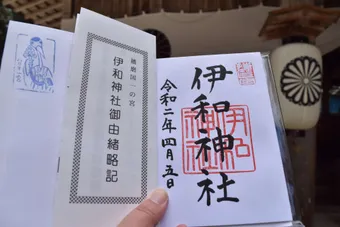 伊和神社
令和二年四月五日
伊和
神社
播磨国一の宮
伊和神社御由緒略記